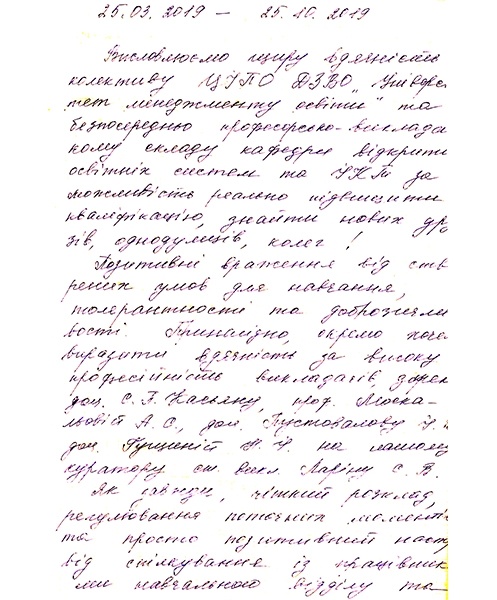 25.03.2019 — 25.10.2019
Висловлюємо щиру вдячність
колективу ЦІПО ДЗВО „Універси
тет менеджменту освіти" та
безпосередньо професорсько-виклада
кому складу кафедри відкрити
освітніх систем та ІКТ за
можливість реально підвищити
кваліфікацію, знайти нових дру
зів, однодумців, колег!
Позитивні враження від ств
рених умов для навчання,
толерантності та доброзичли
вості. Принагідно, окремо хоче
виразити вдячність за високу
професійність викладачів,
доц. С. П. Касьяну, проф. Моска-
льовій А. С., доц. Пустовалову
доц. Гущиній Н. І. на нашому
куратору ст. викл. Ларіну С. В.
Як завжди, чіткий розклад,
регулювання поточних моменті
та просто позитивний наст
від спілкування із працівник
ми навчального відділу та